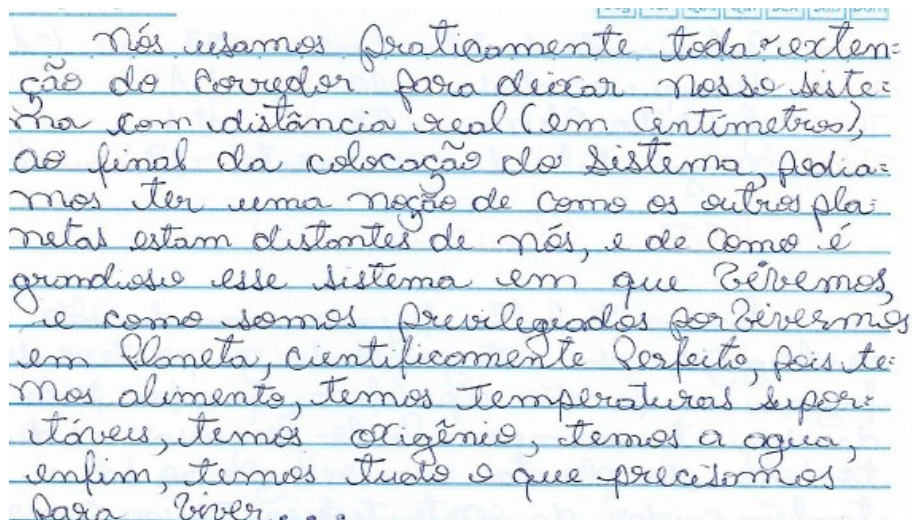 Nós usamos praticamente toda exten=
ção do Corredor para deixar nosso siste=
ma com distância real (em Centímetros),
ao final da colocação do sistema, podia=
mos ter uma noção de como os outros pla=
netas estam distantes de nós, e de como é
grandioso esse sistema em que vivemos,
e como somos previlegiados por vivermos
em Planeta, cientificamente Perfeito, pois te=
mos alimento, temos temperaturas supor=
táveis, temos oxigênio, temos a agua,
enfim, temos tudo o que precisamos
para viver....